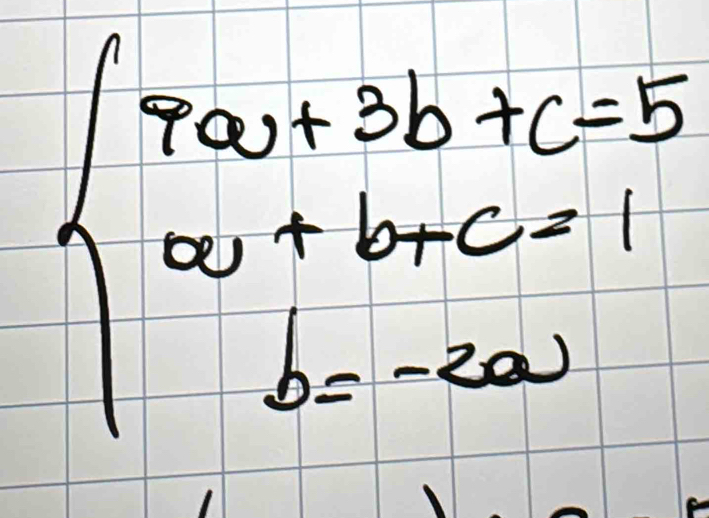 9a + 3b + c = 5
a + b + c = 1
b = -2a